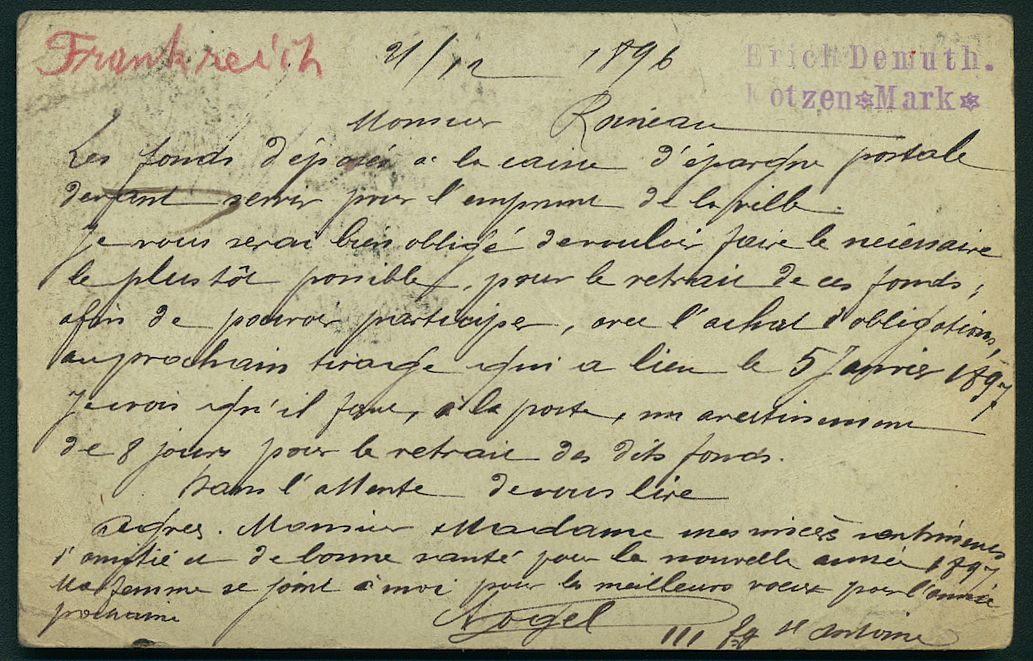 Frankreich
21/12 1896
Erich Demuth.
Kotzen✡Mark✡
Monsieur Roineau
Les fonds déposés à la caisse d'épargne postale
devant servir pour l'emprunt de la ville.
Je vous serai bien obligé de vouloir faire le nécessaire
le plustôt possible, pour le retrait de ces fonds;
afin de pouvoir participer, avec l'achat d'obligations,
au prochain tirage qui a lieu le 5 Janvier 1897.
Je crois qu'il faut, à la poste, un avertissement
de 8 jours pour le retrait des dits fonds.
Dans l'attente de vous lire
Agréz. Monsieur & Madame mes sincères sentiments
d'amitié et de bonne santé pour la nouvelle année 1897
Ma femme se joint à moi pour les meilleurs voeux pour l'année
prochaine
Vogel
111 fg St Antoine